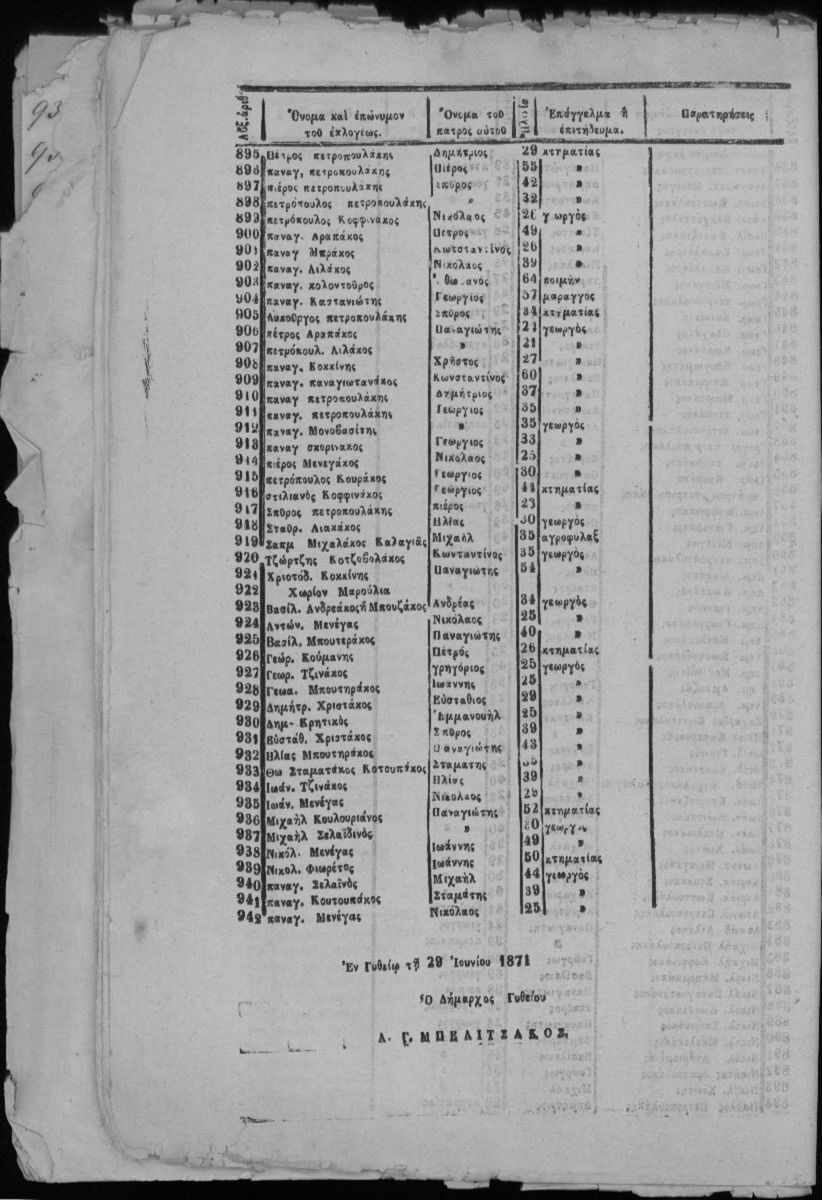 93
Αὔξ. ἀριθ. Ὄνομα καὶ ἐπώνυμον τοῦ ἐκλογέως. Ὄνομα τοῦ πατρὸς αὐτοῦ Ἡλικία Ἐπάγγελμα ἢ ἐπιτήδευμα. Παρατηρήσεις
895 Πέτρος πετροπουλάκης Δημήτριος 29 κτηματίας
896 παναγ, πετροπουλάκης Πιέρος 55 »
897 πιέρος πετροπουλάκης Σπύρος 42 »
898 πετρόπουλος πετροπουλάκης » 32 »
899 πετρόπουλος Κοφφινάκος Νικόλαος 26 γ ωργὸς
900 παναγ. Αραπάκος Πετρος 49 »
901 παναγ Μπράκος Κωτσταντῖνος 26 »
902 παναγ. Λιλάκος Νικολαος 39 »
903 παναγ. κολοντοῦρος 64 ποιμὴν
904 παναγ. Καστανιώτης Γεωργιος 57 μαραγγος
905 Λυκοῦργος πετροπουλάκης Σπῦρος 34 κτηματίας
906 πέτρος Αραπάκος Παναγιώτης 24 γεωργὸς
907 πετρόπουλ. Λιλάκος » 21 »
908 παναγ. Κοκκίνης Χρῆστος 27 »
909 παναγ. παναγιωτανάκος Κωνσταντίνος 60 »
910 παναγ πετροπουλάκης Δημήτριος 37 »
911 παναγ. πετροπουλάκης Γεωργιος 35 »
912 παναγ. Μονοβασίτης » 35 γεωργὸς
913 παναγ σκορινακος Γεωργιος 33 »
914 πιέρος Μενεγάκος Νικολαος 25 »
915 πετρόπουλος Κουράκος Γεωργιος 30 »
916 στιλιανὸς Κοφφινάκος Γεώργιος 44 κτηματίας
917 Σπῦρος πετροπουλάκης πιέρος 23 »
918 Σταῦρ. Λιακάκος Ηλίας 30 γεωργὸς
919 Σαπμ Μιχαλάκος Καλαγιᾶς Μιχαὴλ 35 αγροφυλαξ
920 Τζώρτζης Κοτζοβολάκος Κωνταντίνος 35 γεωργὸς
921 Χριοτόδ. Κοκκίνης Παναγιώτης 54 »
922 Χωρίον Μαρούλια
923 Βασίλ. Ανδρεάκος ἢ Μπουζάκος Ανδρέας 34 γεωργὸς
924 Αντών. Μενέγας Νικόλαος 25 »
925 Βασίλ, Μπουτεράκος Παναγιώτης 40 »
926 Γεώρ. Κούμανης Πέτρός 26 κτηματίας
927 Γεωρ. Τζινάκος γρηγόριος 25 γεωργὸς
928 Γεωα. Μπουτηράκος Ιωάννης 25 »
929 Δημήτρ. Χριστάκος Εὐσταθιος 29 »
930 Δημ- Κρητικὸς Ἐμμανουὴλ 25 »
931 Εὐστάθ. Χριστάκος Σπῦρος 39 »
932 Ηλίας Μπουτηράκος Παναγιώτης 43 »
933 Θω Σταματάκος Κοτουπάκος Σταματης »
934 Ιωάν. Τζινάκος Ηλίας 39 »
935 Ιωάν. Μενέγας Νικολαος 29 »
936 Μιχαὴλ Κουλουριάνος Παναγιώτης 52 κτηματίας
937 Μιχαὴλ Σελαϊδινὸς » 30 γεωργὸς
938 Νικόλ. Μενέγας Ιωάννης 49 »
939 Νικολ. Φιωρέτος Ιωάννης 50 κτηματίας
940 παναγ. Σελαῖνὸς Μιχαὴλ 44 γεωργὸς
941 παναγ. Κουτουπάκος Σταμάτης 39 »
942 παναγ. Μενέγας Νικόλαος 25 »
Ἐν Γυθείῳ τῇ 29 Ἰουνίου 1871
Ὁ Δήμαρχος Γυθείου
Λ. Γ. ΜΠΕΛΙΤΣΑΚΟΣ.